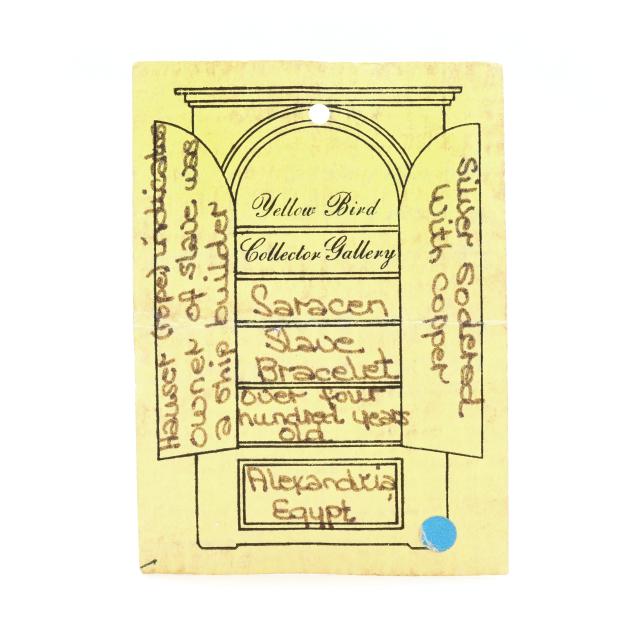 Yellow Bird
Collector Gallery
Saracen
Slave
Bracelet
over four
hundred years
old
Alexandria
Egypt
Hawser (rope) indicates
owner of slave was
a ship builder
Silver Sodered
with copper